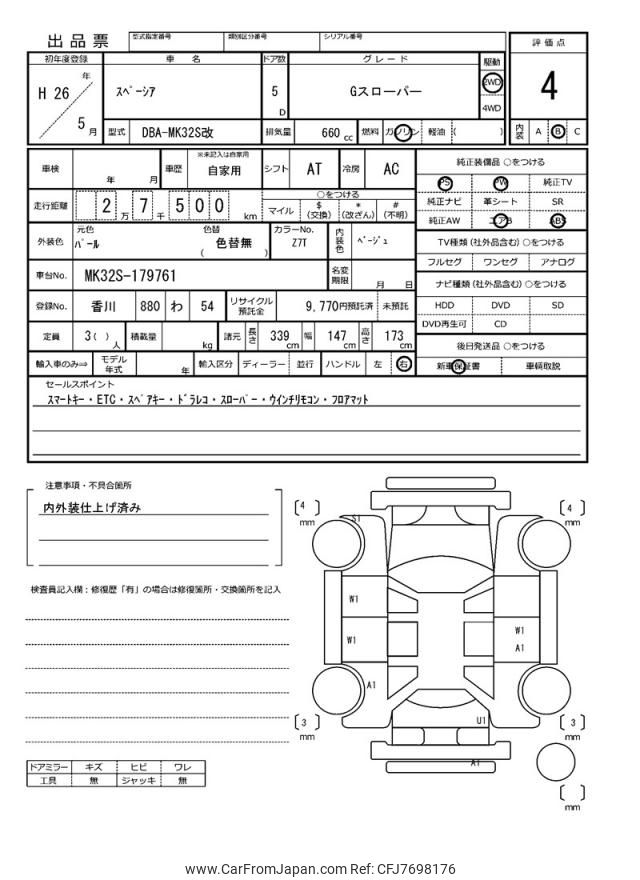 出品票 型式指定番号 類別区分番号 シリアル番号
評価点
4
内装 A B C
初年度登録 車名 ドア数 グレード 駆動
H 26 年 5 月
スペーシア 5 D Gスローパー 2WD 4WD
型式 DBA-MK32S改 排気量 660 cc 燃料 ガソリン 軽油 ( )
車検 年 月 車歴 ※未記入は自家用 自家用 シフト AT 冷房 AC
走行距離 2 万 7 千 5 0 0 km
○をつける
マイル $(交換) *(改ざん) #(不明)
外装色 元色 パール 色替 色替無 ( ) カラーNo. Z7T 内装色 ベージュ
車台No. MK32S-179761 名変期限 月 日
登録No. 香川 880 わ 54 リサイクル預託金 9,770円預託済 未預託
定員 3( ) 人 積載量 kg 諸元 長さ 339 cm 幅 147 cm 高さ 173 cm
輸入車のみ⇒ モデル年式 年 輸入区分 ディーラー 並行 ハンドル 左 右
純正装備品 ○をつける
PS PW 純正TV
純正ナビ 革シート SR
純正AW エアB ABS
TV種類(社外品含む)○をつける
フルセグ ワンセグ アナログ
ナビ種類(社外品含む)○をつける
HDD DVD SD
DVD再生可 CD
後日発送品 ○をつける
新車保証書 車輌取説
セールスポイント
スマートキー・ETC・スペアキー・ドラレコ・スローパー・ウインチリモコン・フロアマット
注意事項・不具合箇所
内外装仕上げ済み
検査員記入欄:修復歴「有」の場合は修復箇所・交換箇所を記入
ドアミラー キズ ヒビ ワレ
工具 無 ジャッキ 無
[ 4 ] mm
[ 4 ] mm
S1
W1
W1
W1
A1
A1
U1
[ 3 ] mm
[ 3 ] mm
A1
[ ] mm
www.CarFromJapan.com Ref: CFJ7698176